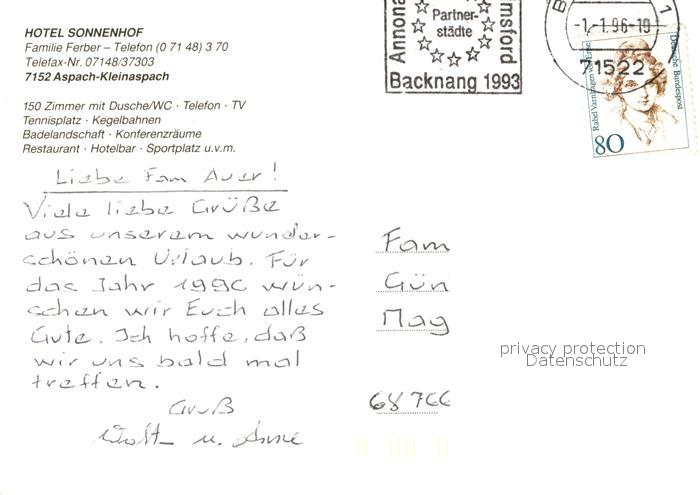 HOTEL SONNENHOF
Familie Ferber – Telefon (0 71 48) 3 70
Telefax-Nr. 07148/37303
7152 Aspach-Kleinaspach
150 Zimmer mit Dusche/WC · Telefon · TV
Tennisplatz · Kegelbahnen
Badelandschaft · Konferenzräume
Restaurant · Hotelbar · Sportplatz u.v.m.
Annona
Partner-
städte
lmsford
Backnang 1993
B
1
-1.-1.96-19
71522
Rahel Varnhagen von Ense
Deutsche Bundespost
80
Liebe Fam Auer!
Viele liebe Grüße
aus unserem wunder-
schönen Urlaub. Für
das Jahr 1996 wün-
schen wir Euch alles
Gute. Ich hoffe, daß
wir uns bald mal
treffen.
Gruß
u. Anne
Fam
Gün
Mag
68766
privacy protection
Datenschutz